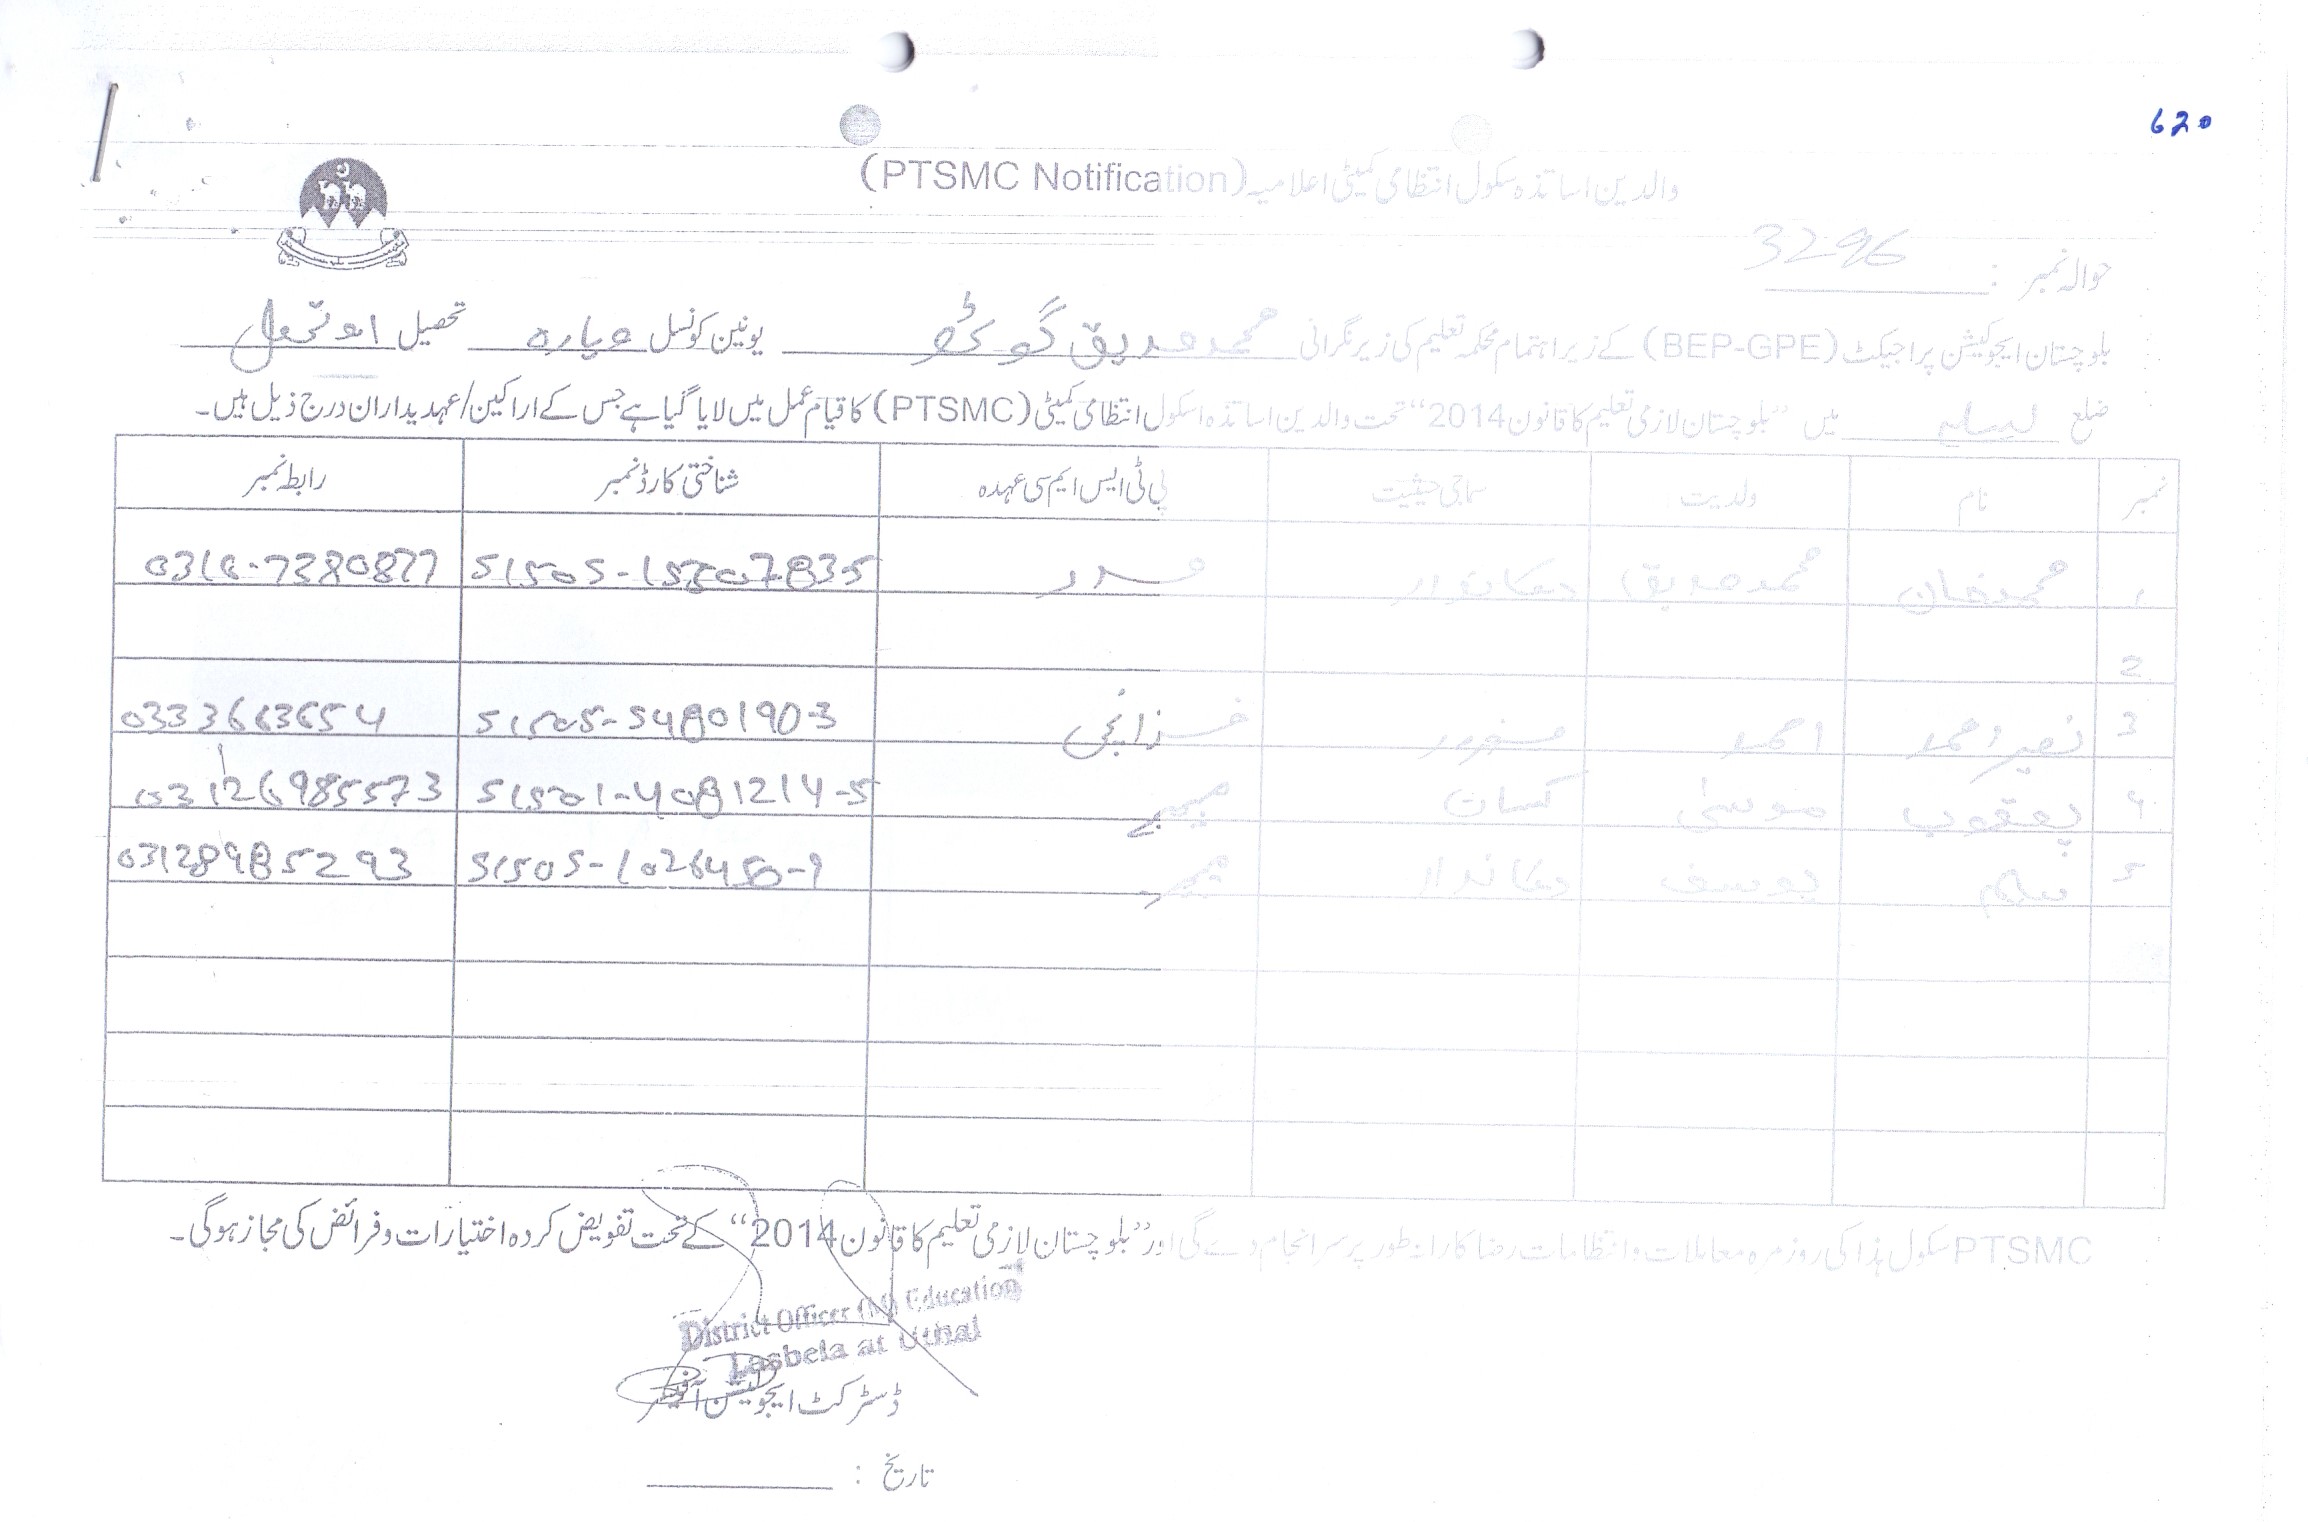 620
والدین اساتذہ سکول انتظامی کمیٹی اعلامیہ (PTSMC Notification)
حوالہ نمبر : 3296
بلوچستان ایجوکیشن پراجیکٹ (BEP-GPE) کے زیر اہتمام محکمہ تعلیم کی زیر نگرانی محمد صدیق گوٹھ یونین کونسل تحصیل اوتھل
ضلع لسبیلہ میں ”بلوچستان لازمی تعلیم کا قانون 2014“ تحت والدین اساتذہ اسکول انتظامی کمیٹی (PTSMC) کا قیام عمل میں لایا گیا ہے جس کے اراکین/عہدیداران درج ذیل ہیں۔
نمبر نام ولدیت سماجی حیثیت پی ٹی ایس ایم سی عہدہ شناختی کارڈ نمبر رابطہ نمبر
1 محمد خان محمد صدیق دکاندار صدر 51505-1530783-5
2
3 نصیر احمد احمد مزدور خزانچی 51505-5480190-3 0333663654
4 یعقوب موسیٰ کسان ممبر 51501-4081214-5 03126985573
5 سلیم یوسف دکاندار ممبر 51505-1026450-9 03128985293
PTSMC سکول ہذا کی روزمرہ معاملات و انتظامات رضا کارانہ طور پر سرانجام دے گی اور ”بلوچستان لازمی تعلیم کا قانون 2014“ کے تحت تفویض کردہ اختیارات و فرائض کی مجاز ہوگی۔
District Officer (M) Education
Lasbela at Uthal
ڈسٹرکٹ ایجوکیشن آفیسر
تاریخ :